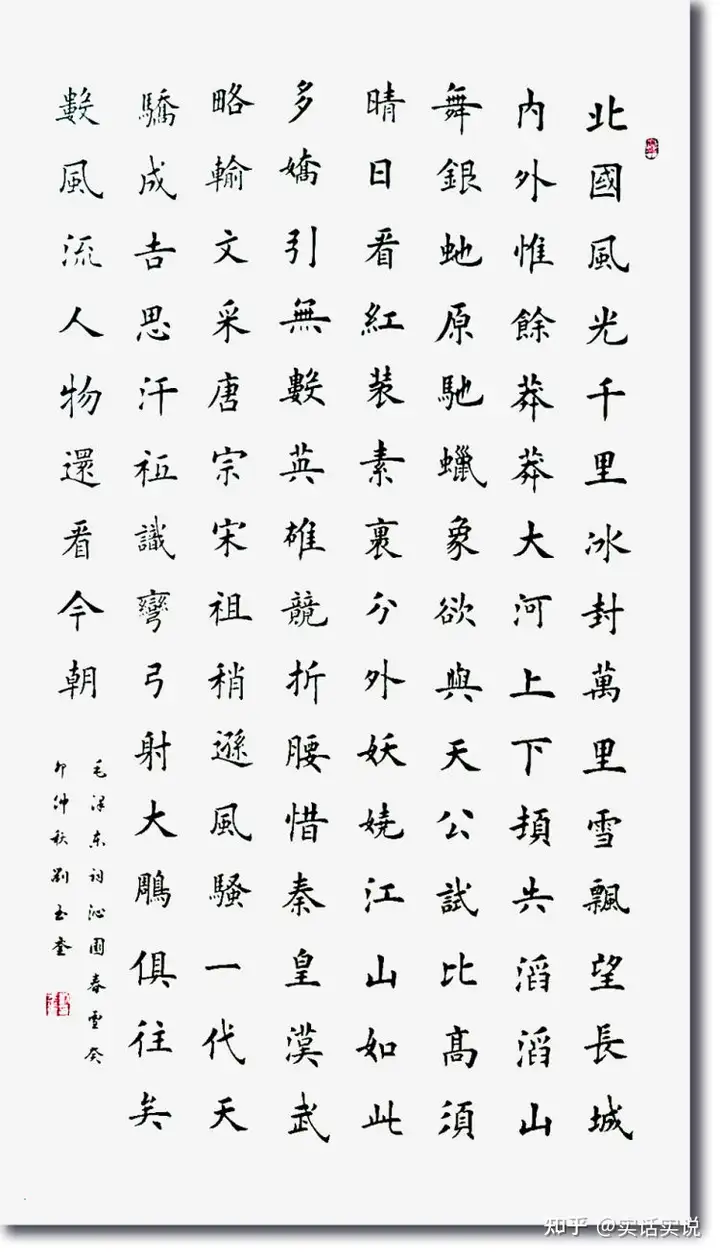 北國風光千里冰封萬里雪飄望長城
內外惟餘莽莽大河上下頓失滔滔山
舞銀蛇原馳蠟象欲與天公試比高須
晴日看紅裝素裹分外妖嬈江山如此
多嬌引無數英雄競折腰惜秦皇漢武
略輸文采唐宗宋祖稍遜風騷一代天
驕成吉思汗祗識彎弓射大鵰俱往矣
數風流人物還看今朝
毛澤东词沁園春雪癸
卯仲秋劉玉奎
知乎 @实话实说